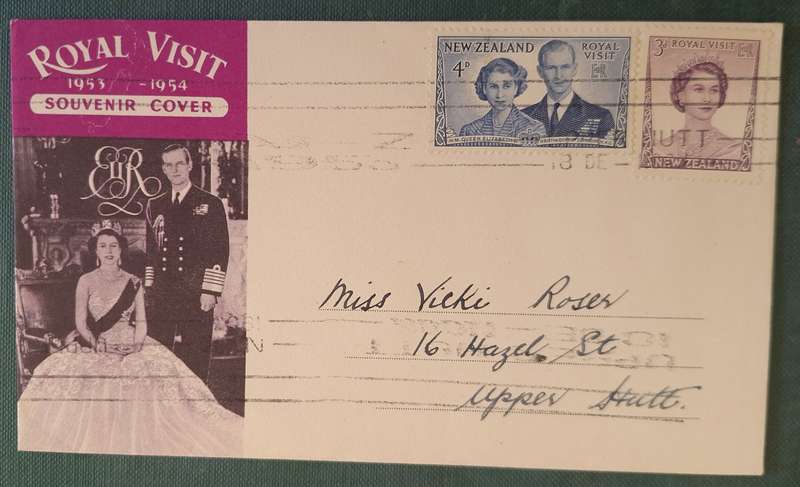 ROYAL VISIT
1953 - 1954
SOUVENIR COVER
EIIR
NEW ZEALAND
4D
ROYAL VISIT
H.M. QUEEN ELIZABETH
3D ROYAL VISIT
NEW ZEALAND
HUTT
18 DE
Miss Vicki Roser
16 Hazel St
Upper Hutt.